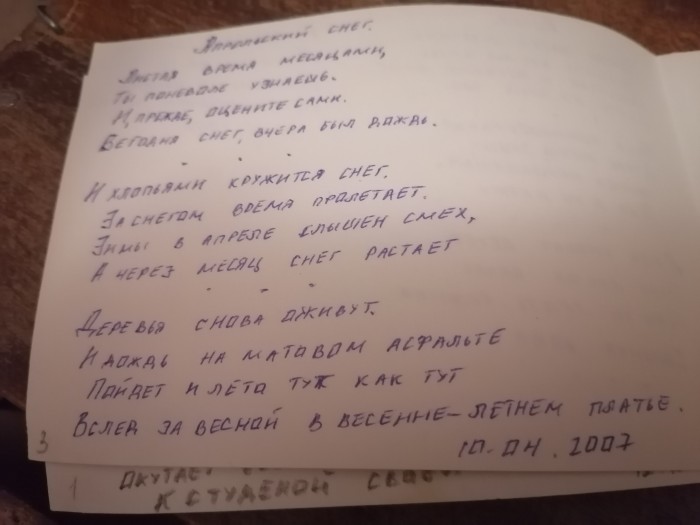 Апрельский снег.
Листая время месяцами,
Ты поневоле узнаешь.
И, прежде, оцените сами.
Сегодня снег, вчера был дождь.
И хлопьями кружится снег.
За снегом время пролетает.
Зимы в апреле слышен смех,
А через месяц снег растает
Деревья снова оживут.
И дождь на матовом асфальте
Пойдет и лето тут как тут
Вслед за весной в весенне-летнем платье.
10.04.2007
3
1 Окутает
К студеной